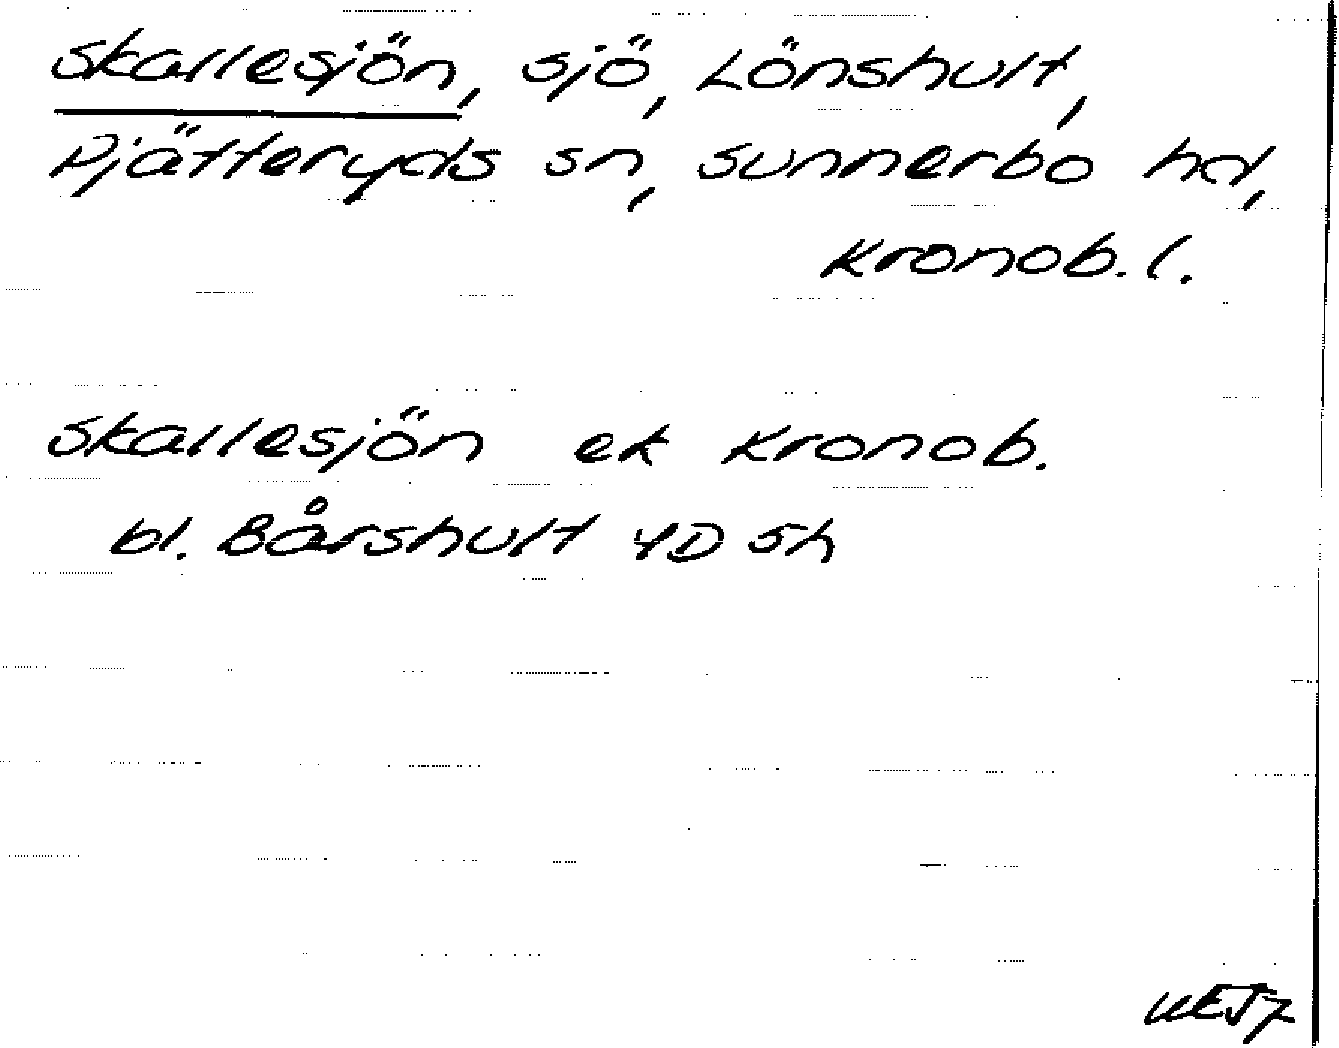 Skallesjön, sjö, Lönshult,
Pjätteryds sn, Sunnerbo hd,
Kronob. l.
Skallesjön ek Kronob.
bl. Bårshult 4D 5h